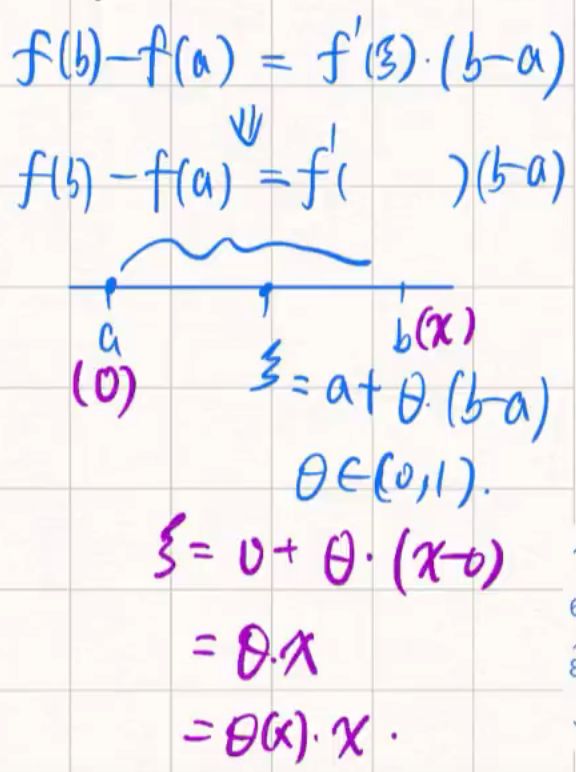 f(b)-f(a) = f'(ξ)·(b-a)
⇓
f(b)-f(a) = f'(      )(b-a)
a b(x)
(0) ξ = a+ θ·(b-a)
θ∈(0,1).
ξ = 0+ θ·(x-0)
= θ·x
= θ(x)·x.